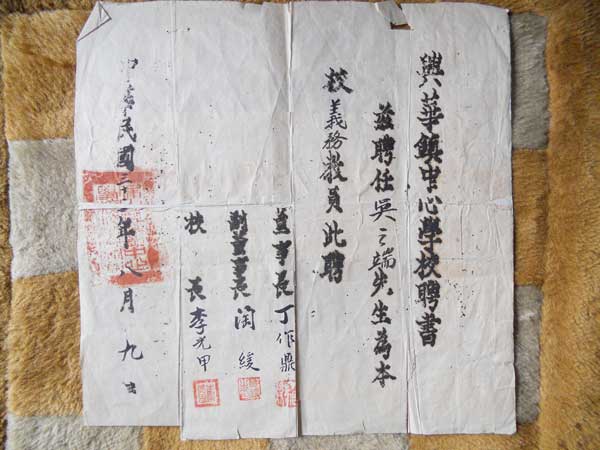 興華鎮中心學校聘書
茲聘任吳之端先生為本
校義務教員此聘
董事長丁作鼎
副董事長閔綏
校長李光甲
中華民國三十一年八月九日